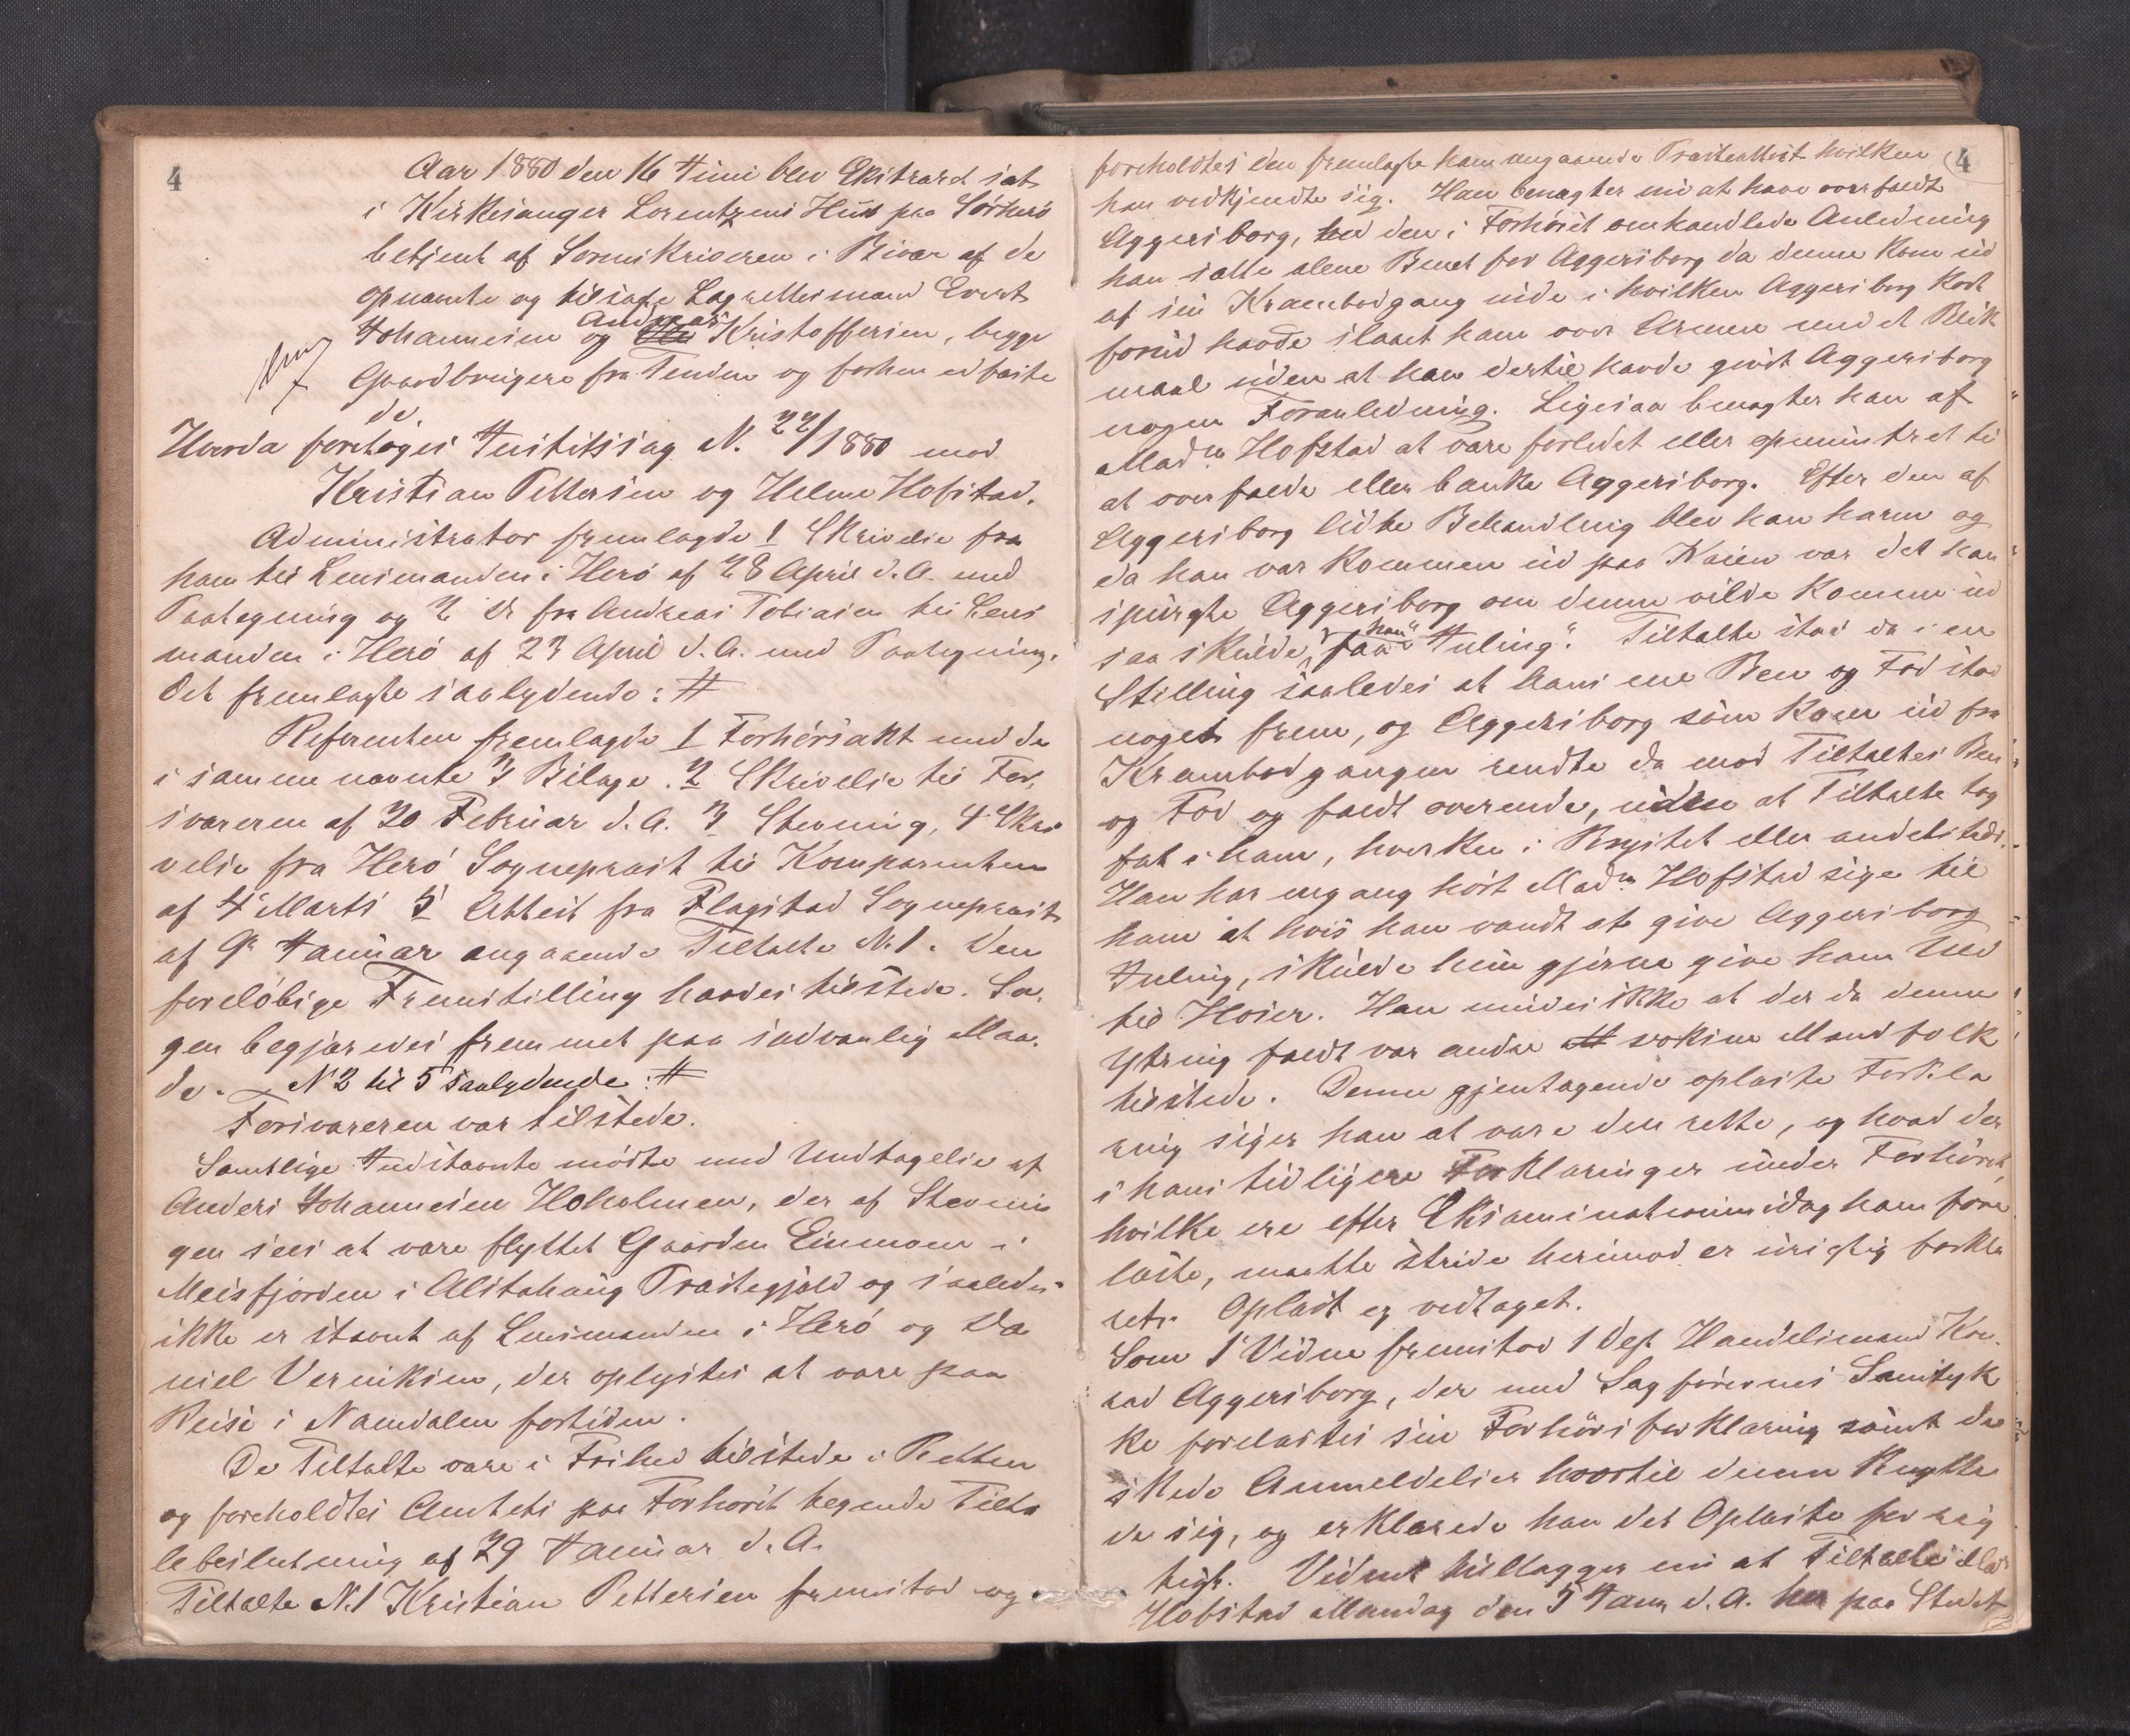 4
Aar 1880 den 16 Juni blev Extraret sat
i Kirkesanger Lorentzens Hus paa Sørherø
betjent af Sorenskriveren i Bivær af de
opnævnte og tilsagte Lagrettesmænd Evert
Johannesen og Andreas Kristoffersen, begge
Gaardbrugere fra Tenden og forhen edfæste
Hvorda
de
foretoges Justitssag N. 22/1880 mod
Kristian Pettersen og Helene Hofstad.
Administrator fremlagde 1 Skrivelse fra
ham til Lensmanden i Herø af 28 April d. A. med
Paategning og 2 do fra Andreas Tobiasen til Lens
manden i Herø af 23 April d. A. med Paategning.
Det fremlagte saalydende: #
Referenten fremlagde 1 Forhørsakt med de
i samme nævnte 3 Bilage. 2 Skrivelse til For,
svareren af 20 Februar d. A. 3 Stevning, 4 Skri
velse fra Herø Sogneprest til Komparenten
af 4 Marts 5 Attest fra Flagstad Sogneprest
af 9 Januar angaaende Tiltalte N. 1. Den
foreløbige Fremstilling havdes tilstede. Sa,
gen begjæredes fremmet paa sædvanlig Maa,
de. – N 2 til 5 saalydende: #
Forsvareren var tilstede.
Samtlige Indstævnte mødte med Undtagelse af
Anders Johannesen Hoholmen, der af Stevnin
gen sees at være flyttet Gaarden Einmoen i
Meisfjorden i Alstahaug Præstegjeld og saaledes
ikke er stævnt af Lensmanden i Herø og Da
niel Verniksen, der oplystes at være paa
Reise i Namdalen fortiden.
De Tiltalte vare i Frihed tilstede i Retten
og foreholdtes Amtets paa Forhørit tegnede Tilta
lebeslutning af 29 Januar d. A.
Tiltalte N. 1 Kristian Pettersen fremstod og
4
foreholdtes den fremlagte ham angaaende Præsteattest hvilken
han vedkjendte sig. Han benægter nu at have overfaldt
Aggersborg, ved den i Forhøret omhandlede Anledning
han satte alene Benet for Aggersborg da denne kom ud
af sin Krambodgang inde i hvilken Aggersborg kort
forud havde slaaet ham over Armen med et Blik
maal uden at han dertil havde givet Aggersborg
nogen Foranledning. Ligesaa benægter han af
Madm Hofstad at være forledet eller opmuntret til
at overfalde eller banke Aggersborg. Efter den af
Aggersborg lidte Behandling blev han harm og
da han var kommen ud paa Kaien var det han
spurgte Aggersborg om denne vilde komme ud
saa skulde han "faa Juling". Tiltalte stod da i en
Stilling saaledes at hans ene Ben og Fod stod
noget frem, og Aggersborg som kom ud fra
Krambodgangen rendte da mod Tiltaltes Ben
og Fod og faldt overende, uden at Tiltalte tog
fat i ham, hverken i Brystet eller andetsteds.
Han har engang hørt Madm Hofstad sige til
ham at hvis han vandt at give Aggersborg
Juling, skulde hun gjerne give ham Uld
til Hoser. Han mindes ikke at der da denne
Ytring faldt var andre voksne Mandfolk
tilstede. Denne gjentagende oplæste Forkla
ring siger han at være den rette, og hvad der
i hans tidligere Forklaringer under Forhøret,
hvilke ere efter Eksaminationen idag ham fore
læste, maatte stride herimod er urigtig forkla
ret. Oplæst og vedtaget.
Som 1 Vidne fremstod 1 Dep. Handelsmand Kon,
rad Aggersborg, der med Sagførernes Samtyk
ke forelæstes sin Forhørsforklaring samt de
skede Anmeldelser hvortil denne knytte
de sig, og erklærede han det Oplæste for rig
tigt. Vidnet tillægger nu at Tiltalte Mad
Hofstad Mandag den 5 Janr d. A. her paa Stedet